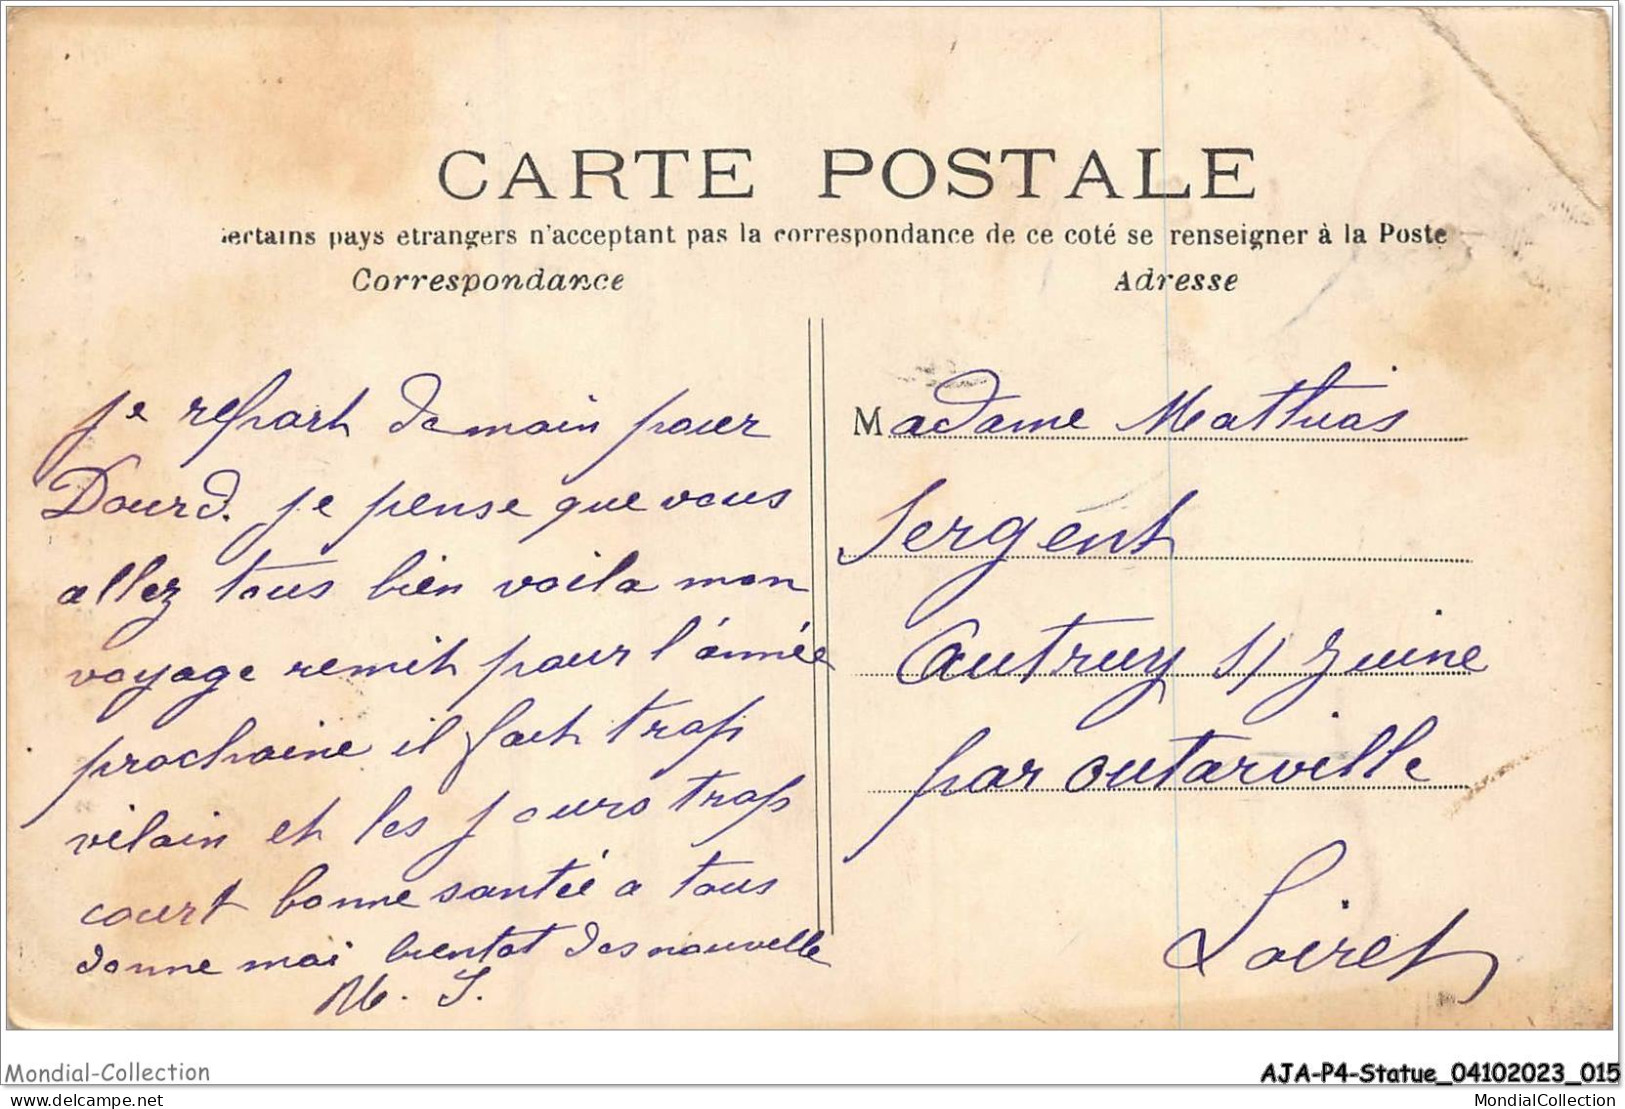 CARTE POSTALE
certains pays etrangers n'acceptant pas la correspondance de ce coté se renseigner à la Poste
Correspondance
Adresse
je repart demain pour
Dourd. je pense que vous
allez tous bien voila mon
voyage remit pour l'année
prochaine il fait trop
vilain et les jours trop
court bonne santée a tous
donne moi bientot des nouvelle
M. S.
Madame Mathias
Sergent
Autruy s/ Juine
par outarville
Loiret
Mondial-Collection
AJA-P4-Statue_04102023_015
delcampe.net
MondialCollection